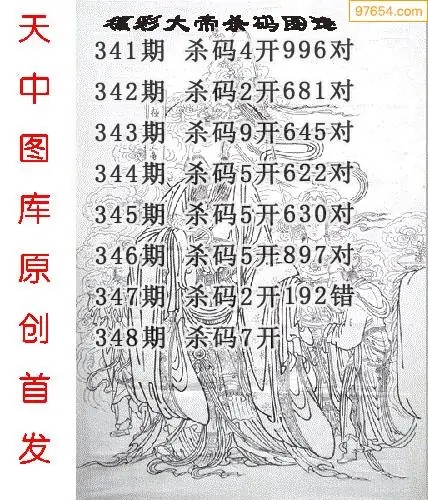 97654.com
福彩大帝杀码图谜
341期 杀码4开996对
342期 杀码2开681对
343期 杀码9开645对
344期 杀码5开622对
345期 杀码5开630对
346期 杀码5开897对
347期 杀码2开192错
348期 杀码7开
天中图库原创首发